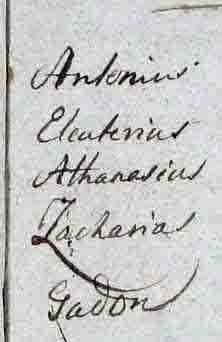 Antonius
Eleuterius
Athanasius
Zacharias
Gadon